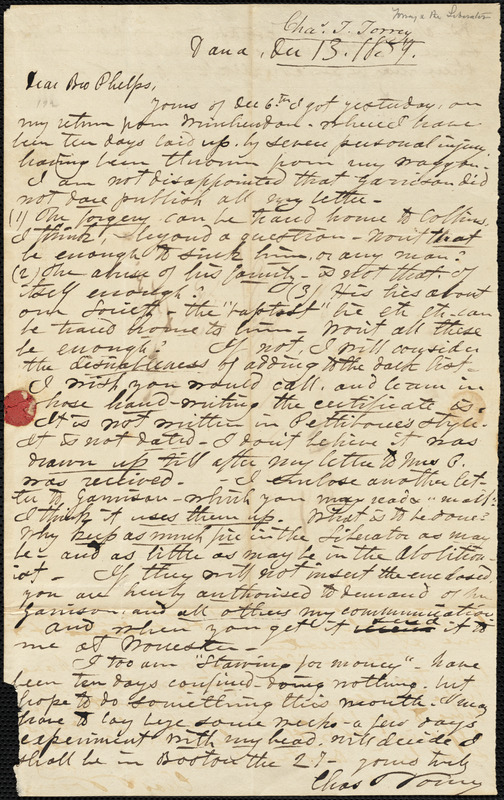 Torrey & the Liberator
Chas. T. Torrey
Dana, Dec 13. 1839.
Dear Bro Phelps,
Yours of Dec 6th I got yesterday, on
my return from Winchendon - where I have
been ten days laid up, by severe personal injury
having been thrown from my waggon.
I am not disappointed that Garrison did
not dare publish all my letter -
(1) The forgery can be traced home to Collins,
I think, beyond a question - Won't that
be enough to sink him, or any man?
(2) The abuse of his family - is not that of
itself enough? (3) His lies about
our Society - the "baptist" lie etc etc - can
be traced home to him - Won't all these
be enough? If not, I will consider
the of adding to the dark list -
I wish you would call, and learn in
whose hand-writing the certificate is.
It is not written in Pettibone's style.
It is not dated - I don't believe it was
drawn up till after my letter to Mrs P.
was received. I enclose another let-
ter to Garrison - which you may read & "mail".
I think it uses them up. What is to be done?
Why keep as much fire in the Liberator as may
be - and as little as may be in the Abolition
ist - If they will not insert the enclosed
you are hereby authorised to demand of
Garrison, and all others my communication
and when you get it send it to
me at Worcester -
I too am "starving for money" - have
been ten days confined - doing nothing, but
hope to do something this month. I may
have to lay bye some weeks - a few days
experiment with my head, will decide. I
shall be in Boston the 27 - yours truly
Chas T Torrey